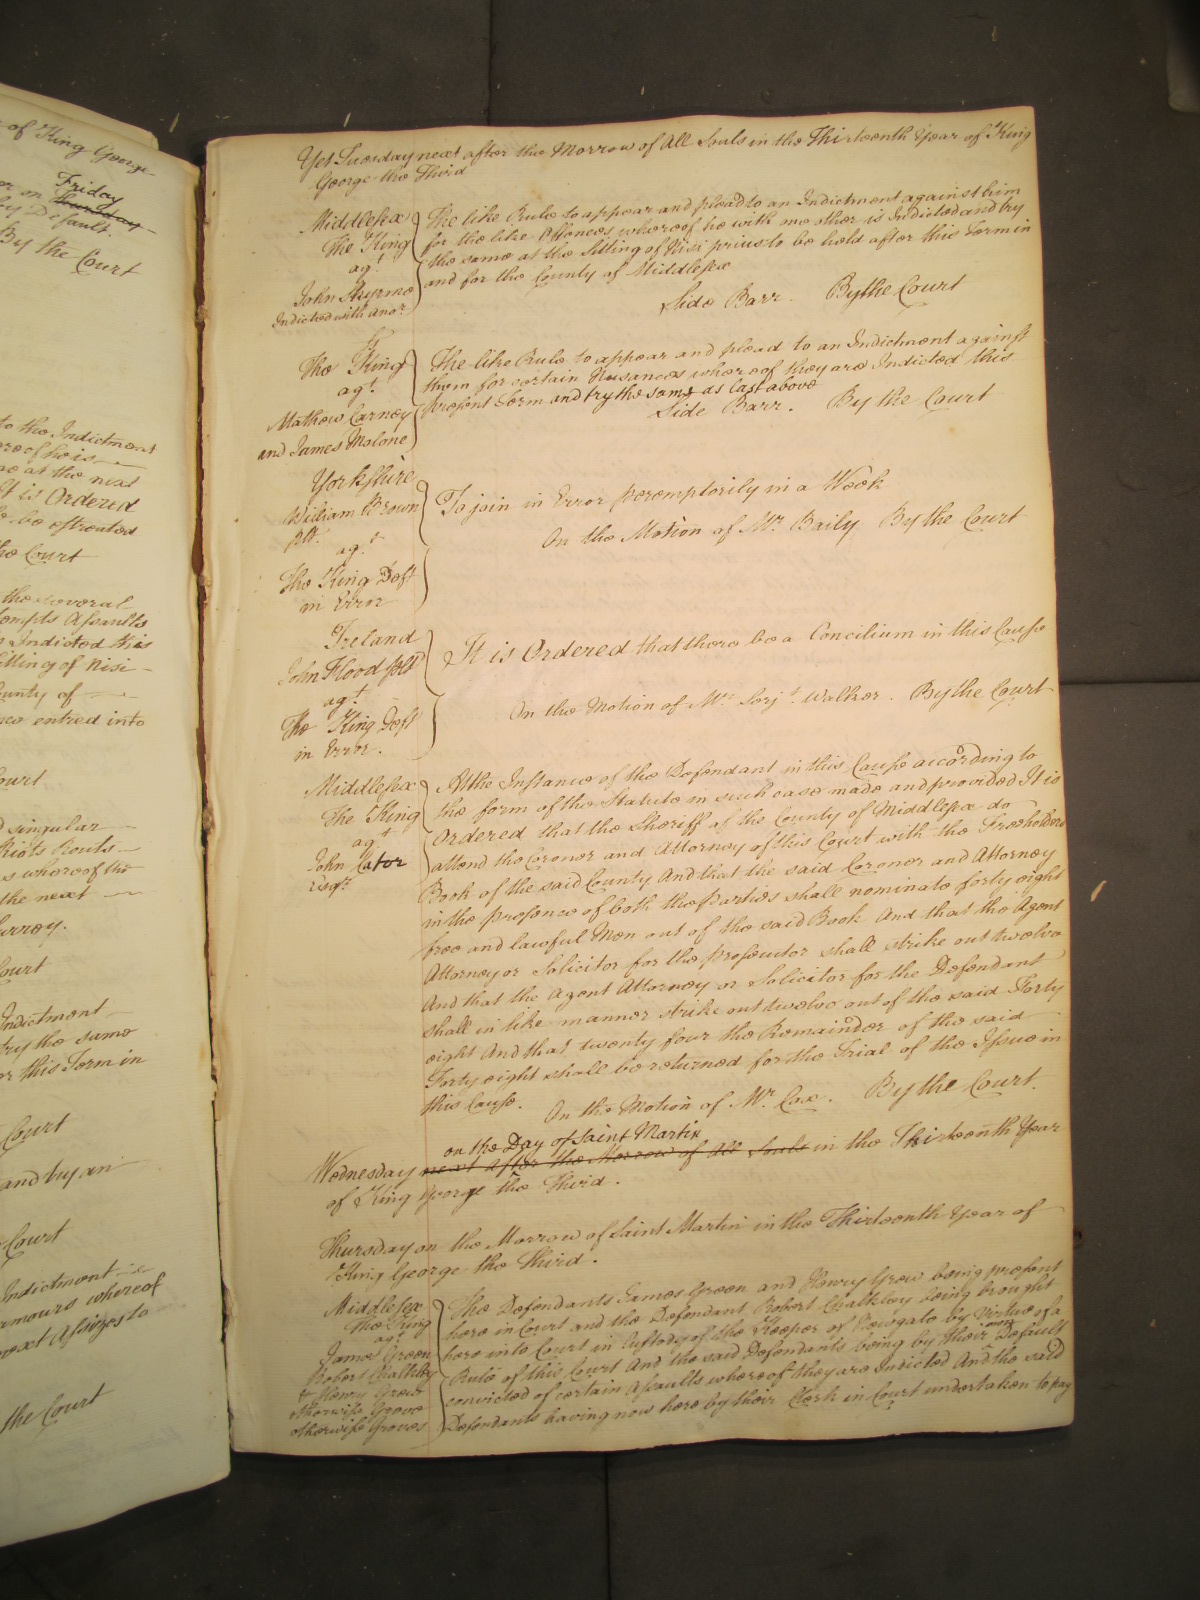 of King George
or on Friday
Thursday
by Default.
By the Court
to the Indictment
at the next
It is Ordered
to be estreated
the Court
the several
Assaults
Indicted this
Sitting of Nisi
County of
entred into
Court
singular
Riots Routs
whereof the
the next
Court
Indictment
try the same
this Term in
Court
and by an
Court
Indictment
whereof
next Assizes to
the Court
Yet Tuesday next after the Morrow of All Souls in the Thirteenth Year of King
George the Third
Middlesex
The King
agt.
John Skyrme
Indicted with anor.
The like Rule to appear and plead to an Indictment against him
for the like Offences whereof he with one other is Indicted and try
the same at the Sitting of Nisi prius to be held after this Term in
and for the County of Middlesex
Side Barr. By the Court
The King
agt.
Mathew Carney
and James Malone
The like Rule to appear and plead to an Indictment against
them for certain Nusances whereof they are Indicted this
present Term and try the same as last above
Side Barr. By the Court
Yorkshire
William Brown
plt.
agt.
The King Deft
in Error
To join in Error peremptorily in a Week
On the Motion of Mr. Baily By the Court
Ireland
John Flood plt
agt.
The King Deft
in Error.
It is Ordered that there be a Concilium in this Cause
On the Motion of Mr. Serjt. Walker. By the Court
Middlesex
The King
agt
John Cator
Esqr.
At the Instance of the Defendant in this Cause according to
the form of the Statute in such case made and provided It is
Ordered that the Sheriff of the County of Middlesex do
attend the Coroner and Attorney of this Court with the Freeholders
Book of the said County And that the said Coroner and Attorney
in the presence of both the parties shall nominate forty eight
free and lawful Men out of the said Book And that the Agent
Attorney or Solicitor for the prosecutor shall strike out twelve
And that the Agent Attorney or Solicitor for the Defendant
shall in like manner strike out twelve out of the said Forty
eight And that twenty four the Remainder of the said
Forty eight shall be returned for the Trial of the Issue in
this Cause. On the Motion of Mr. Cox. By the Court.
on the Day of Saint Martin
Wednesday next after the Morrow of All Souls in the Thirteenth Year
of King George the Third.
Thursday on the Morrow of Saint Martin in the Thirteenth Year of
King George the Third.
Middlesex
The King
agt
James Green
Robert Chalkley
& Henry Grew
otherwise Grove
otherwise Groves
The Defendants James Green and Henry Grew being present
here in Court and the Defendant Robert Chalkley being brought
here into Court in Custody of the Keeper of Newgate by Virtue of a
Rule of this Court And the said Defendants being by their own Default
convicted of certain Assaults whereof they are Indicted And the said
Defendants having now here by their Clerk in Court undertaken to pay